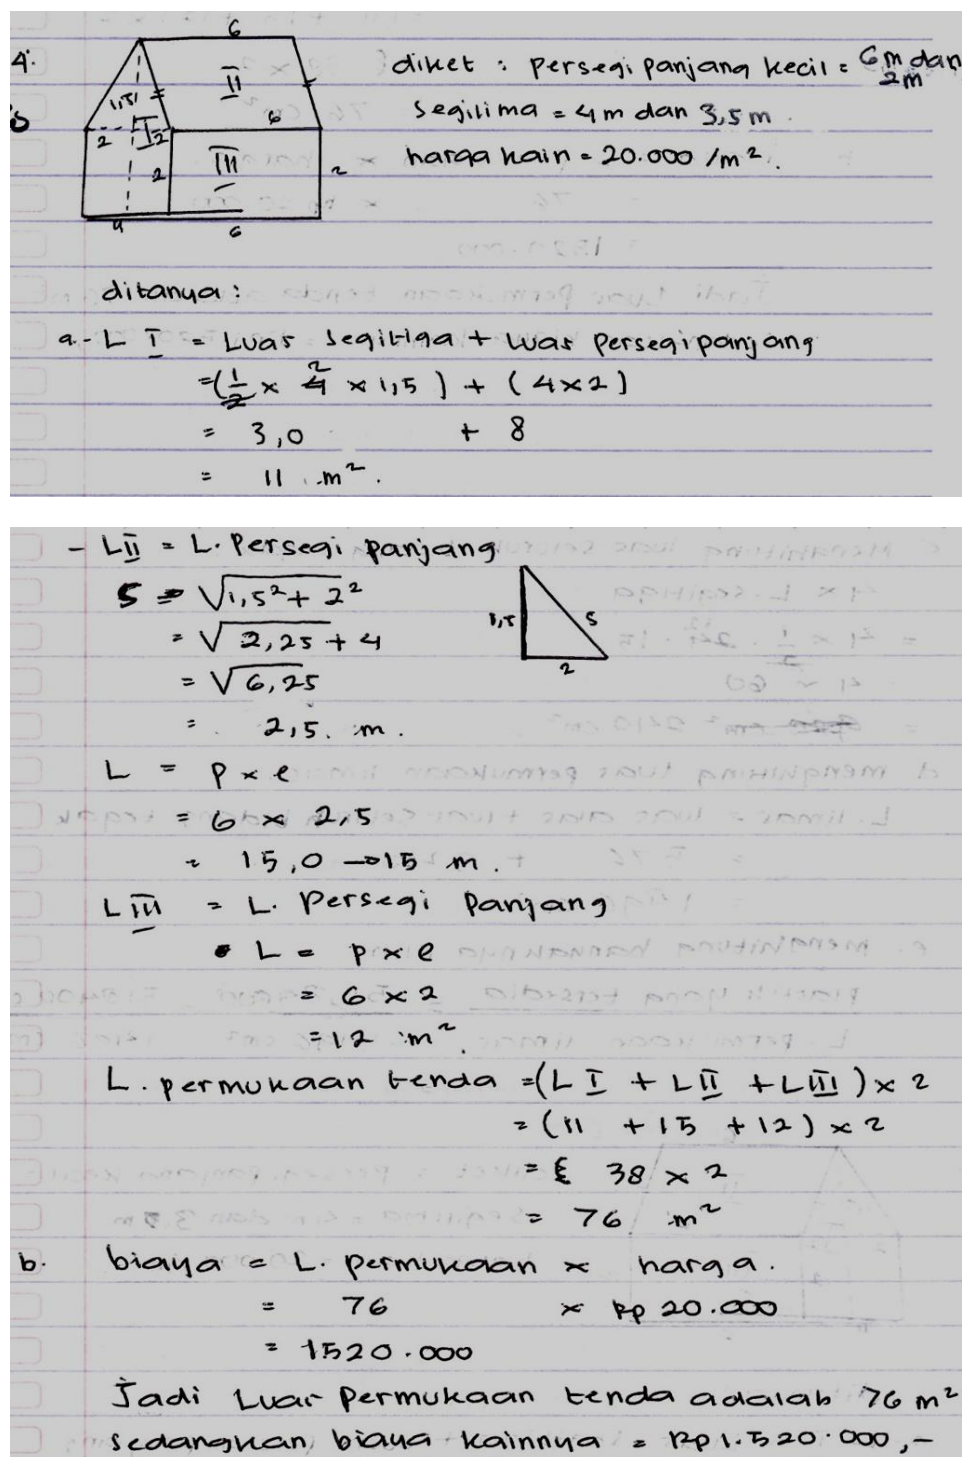 4.
6
II
1,5
6
2
I
2
2
III
2
4
6
diket : persegi panjang kecil = 6m dan 2m
segilima = 4m dan 3,5 m
harga kain = 20.000 /m².
ditanya :
a. - L I = Luas segitiga + Luas persegipanjang
= (1/2 × 4 2 × 1,5) + (4×2)
= 3,0 + 8
= 11 m².
- LII = L. Persegi panjang
S = √1,5² + 2²
= √2,25 + 4
= √6,25
= 2,5. m.
1,5
S
2
L = p × l
= 6 × 2,5
= 15,0 → 15 m.
LIII = L. Persegi Panjang
• L = p×l
= 6 × 2
= 12 m².
L. permukaan tenda = (L I + LII + LIII) × 2
= (11 + 15 + 12) × 2
= 38 × 2
= 76 m²
b. biaya = L. permukaan × harga.
= 76 × Rp 20.000
= 1520.000
Jadi Luas Permukaan tenda adalah 76 m²
sedangkan biaya kainnya = Rp1.520.000,-